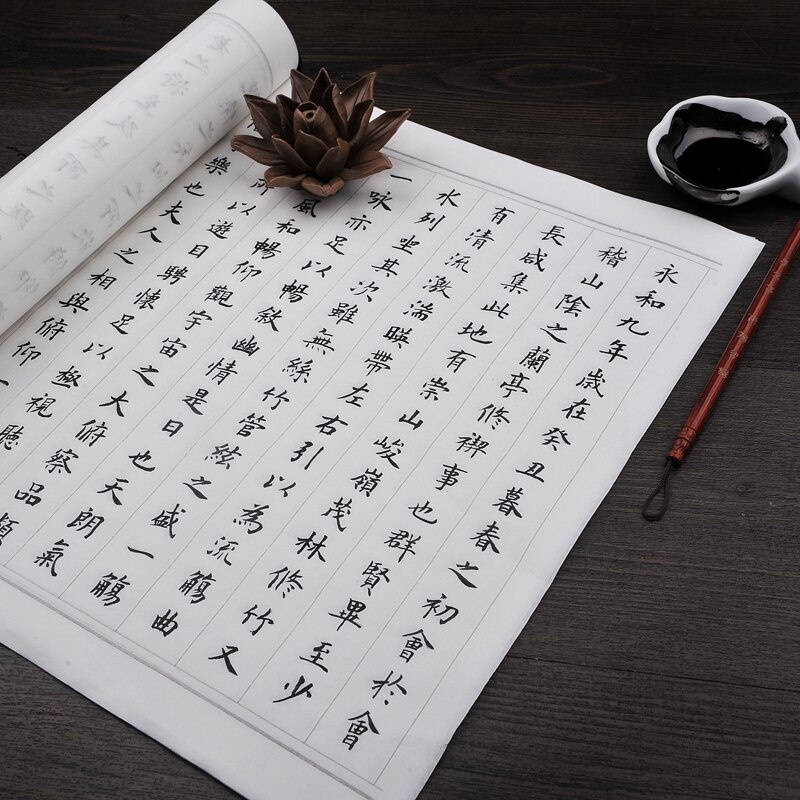 永和九年歲在癸丑暮春之初會於會
稽山陰之蘭亭修禊事也群賢畢至少
長咸集此地有崇山峻嶺茂林修竹又
有清流激湍暎帶左右引以為流觴曲
水列坐其次雖無絲竹管絃之盛一觴
一咏亦足以暢敘幽情是日也天朗氣
風和暢仰觀宇宙之大俯察品類
所以遊目騁懷足以極視聽
樂也夫人之相與俯仰一